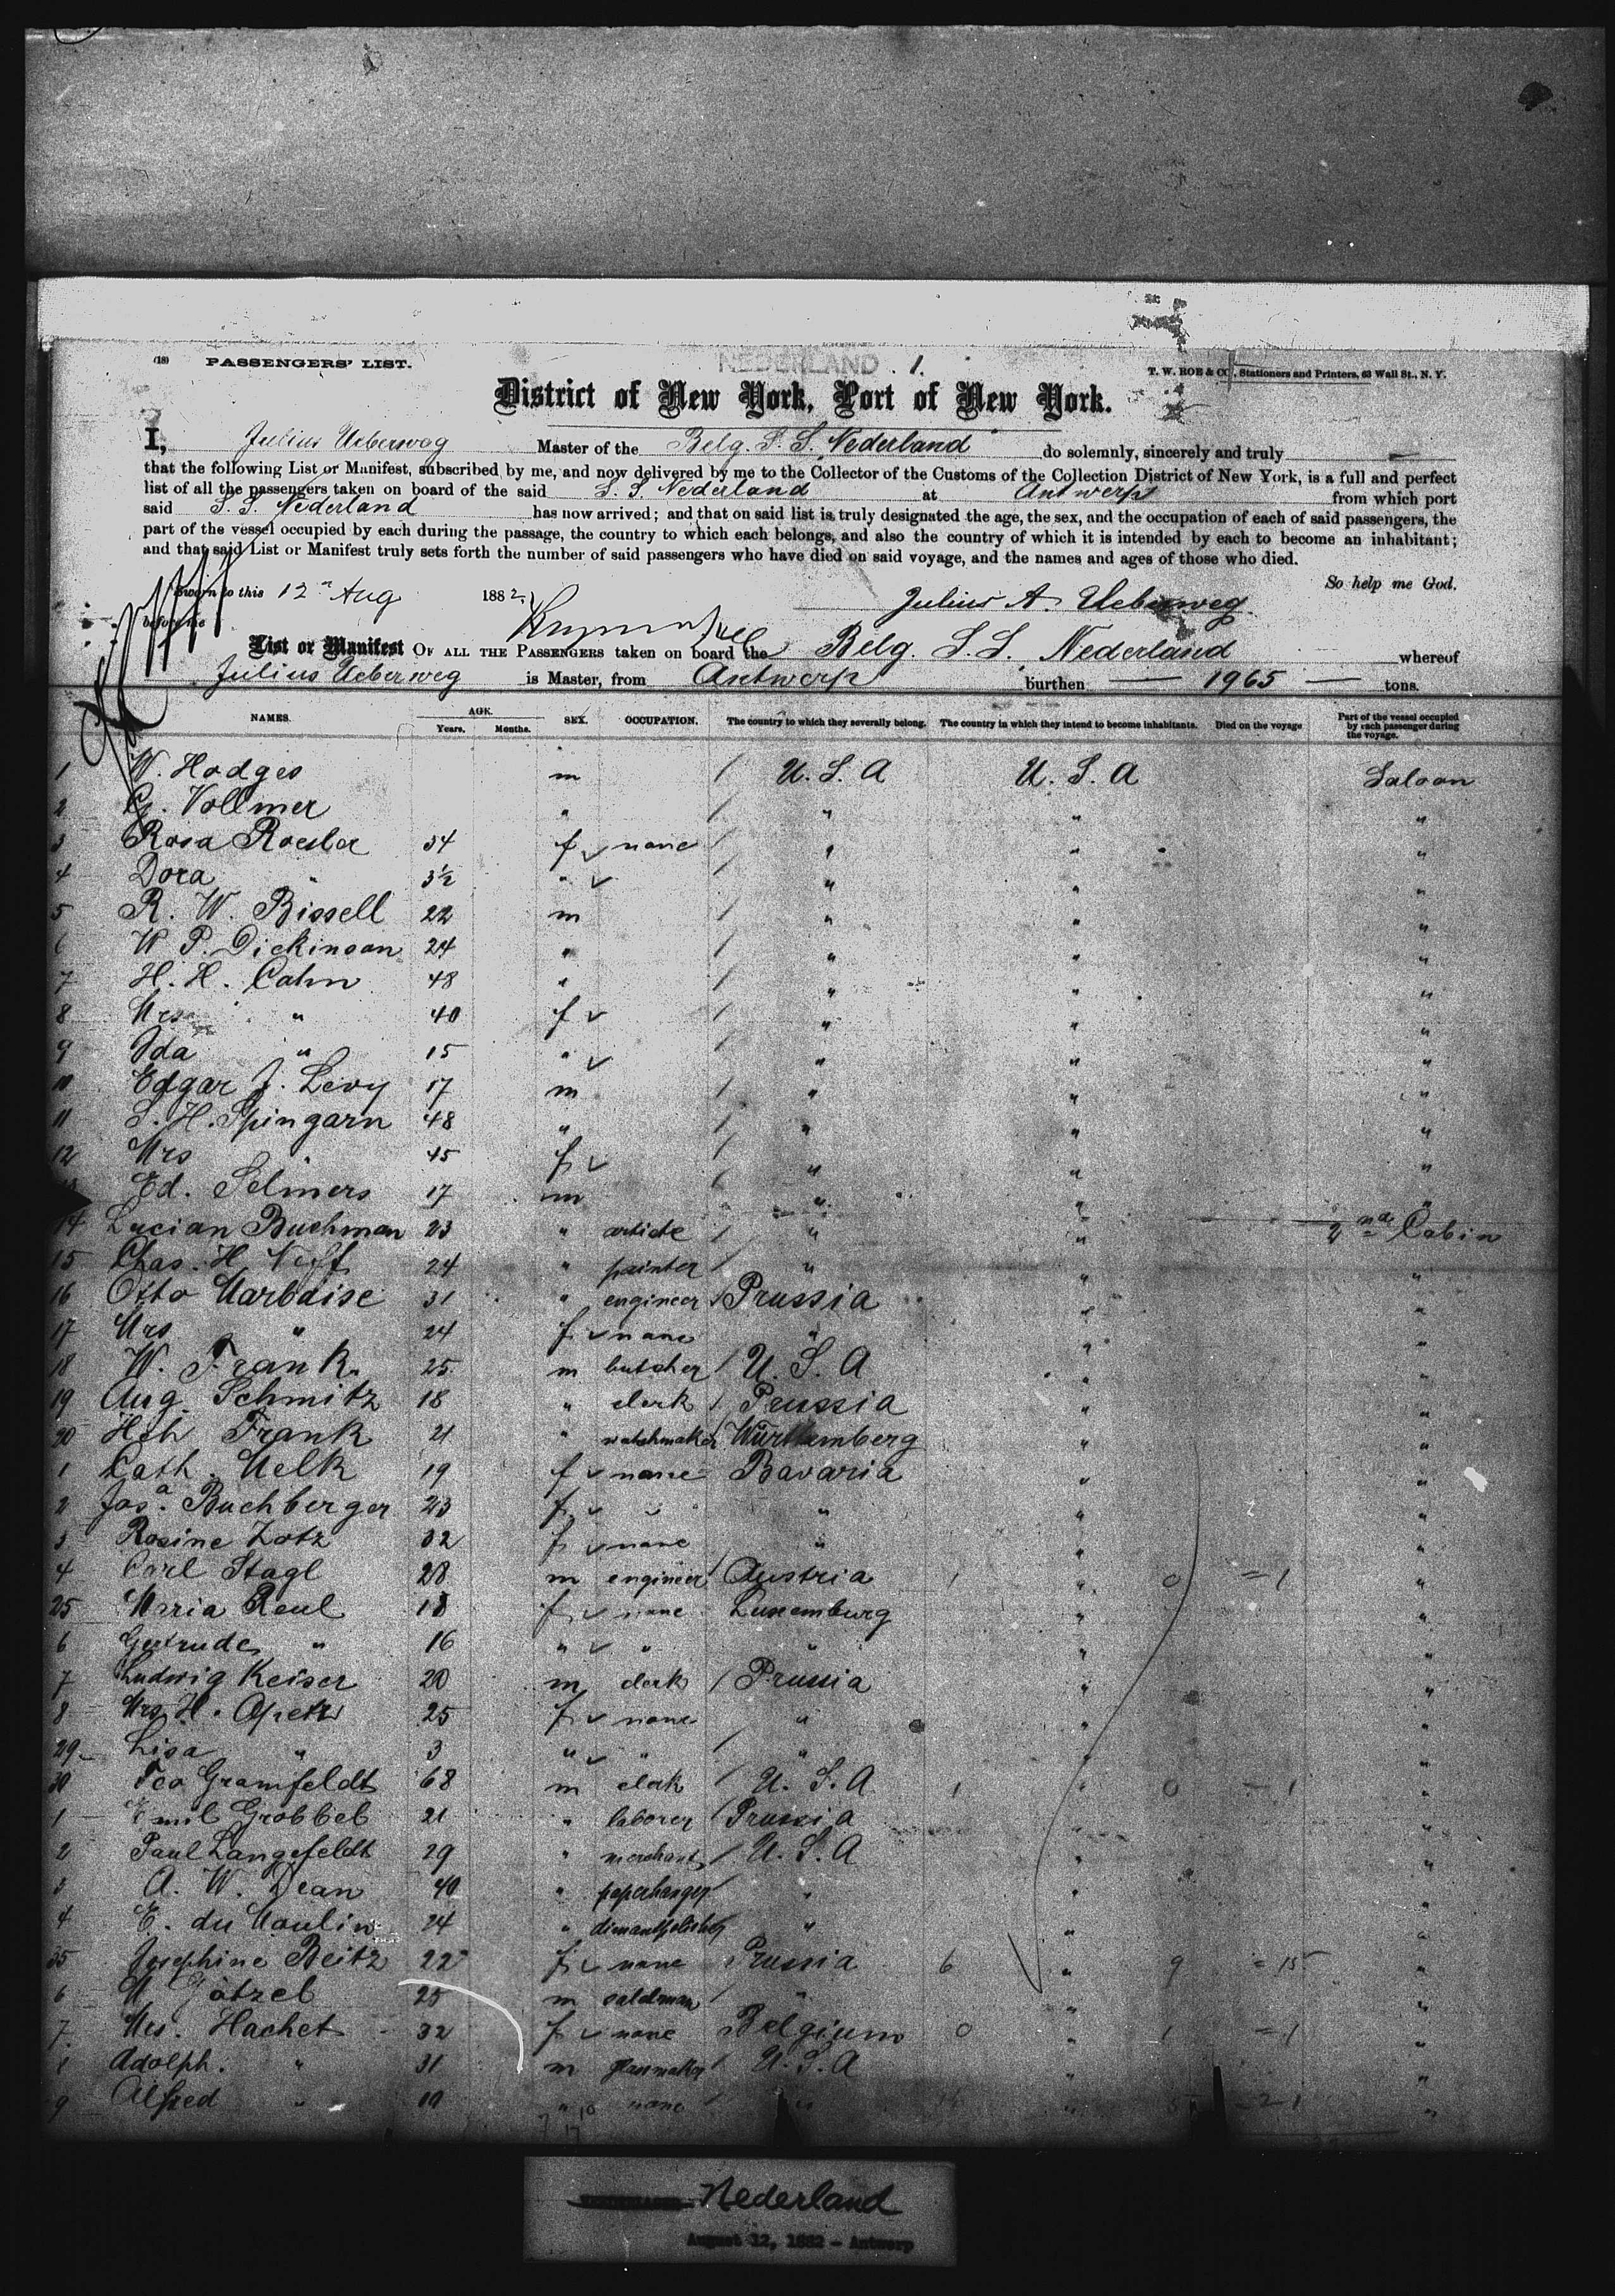 (18) PASSENGERS' LIST. NEDERLAND 1. T. W. ROE & CO., Stationers and Printers, 63 Wall St., N. Y.
District of New York, Port of New York.
I, Julius Ueberweg Master of the Belg. S. S. Nederland do solemnly, sincerely and truly
that the following List or Manifest, subscribed by me, and now delivered by me to the Collector of the Customs of the Collection District of New York, is a full and perfect
list of all the passengers taken on board of the said S. S. Nederland at Antwerp from which port
said S. S. Nederland has now arrived; and that on said list is truly designated the age, the sex, and the occupation of each of said passengers, the
part of the vessel occupied by each during the passage, the country to which each belongs, and also the country of which it is intended by each to become an inhabitant;
and that said List or Manifest truly sets forth the number of said passengers who have died on said voyage, and the names and ages of those who died.
So help me God.
Sworn to this 12 Aug 1882 Julius A. Ueberweg
before me
List or Manifest OF ALL THE PASSENGERS taken on board the Belg. S. S. Nederland whereof
Julius Ueberweg is Master, from Antwerp burthen 1965 tons.
NAMES. AGE. Years. Months. SEX. OCCUPATION. The country to which they severally belong. The country in which they intend to become inhabitants. Died on the voyage Part of the vessel occupied by each passenger during the voyage.
1 W. Hodges m / U. S. A U. S. A Saloon
2 G. Vollmer " / " " "
3 Rosa Roesler 34 f none / " " "
4 Dora " 3½ " / " " "
5 R. W. Bissell 22 m / " " "
6 W. P. Dickinson 24 " / " " "
7 H. H. Cahn 48 " / " " "
8 Mrs " 40 f / " " "
9 Ida " 15 " " " "
10 Edgar J. Levy 17 m / " " "
11 S. H. Spingarn 48 " / " " "
12 Mrs 45 f / " " "
Ed. Selmers 17 m / " " "
14 Lucian Buchman 23 " artiste / " " 2nd Cabin
15 Chas. H. Neff 24 " painter / " " "
16 Otto Marbaise 31 " engineer / Prussia " "
17 Mrs " 24 f none " " "
18 W. Frank 25 m butcher / U. S. A " "
19 Aug. Schmitz 18 " clerk / Prussia " "
20 Hch Frank 21 " watchmaker / Württemberg " "
1 Cath. Welk 19 f none Bavaria " "
2 Josa. Buchberger 23 f " " " "
3 Rosine Zotz 32 f none " " "
4 Carl Stagl 28 m engineer / Austria 1 " 0 = 1 "
25 Maria Reul 18 f none Luxemburg " "
6 Gertrude " 16 " " " " "
7 Ludwig Keiser 20 m clerk / Prussia " "
8 Mrs H. 25 f none " " "
29 Lisa " 3 " " / " " "
30 Gramfeldt 68 m clerk / U. S. A 1 " 0 - 1 "
1 Emil Grobbel 21 " laborer / Prussia " "
2 Paul Langefeldt 29 " merchant / U. S. A " "
3 A. W. Dean 40 " paperhanger " " "
4 E. du Moulin 24 " " " "
35 Josephine Beitz 22 f none Prussia 6 " 9 = 15 "
6 M Götzel 25 m / " " "
7 Mrs. Hachet 32 f none Belgium 0 " 1 = 1 "
8 Adolph. " 31 m glasmaker / U. S. A " "
9 Alfred " 10 " none / " " "
Nederland
August 12, 1882 - Antwerp